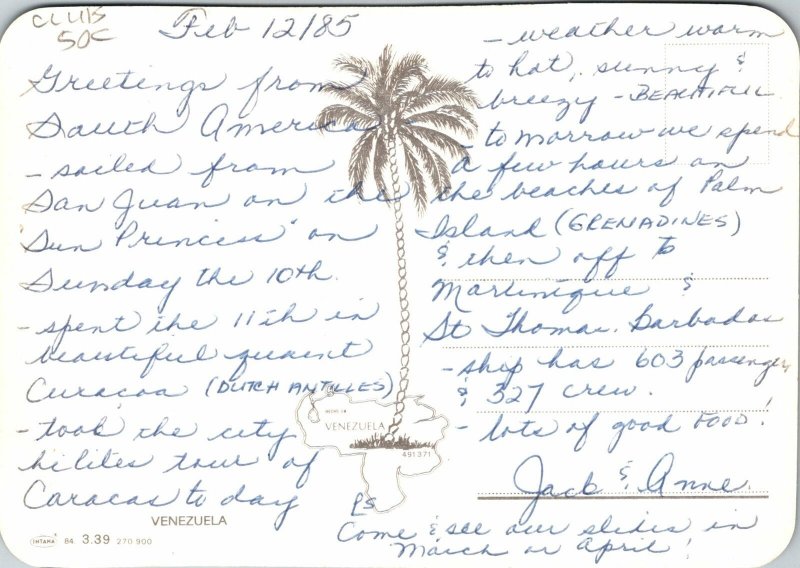 CLUB
50¢
Feb 12/85
Greetings from
South America
- sailed from
San Juan on the
"Sun Princess" on
Sunday the 10th.
- spent the 11th in
beautiful quaint
Curacoa (DUTCH ANTILLES)
- took the city
hilites tour of
Caracas to day
- weather warm
to hot, sunny &
breezy - BEAUTIFUL
- to morrow we spend
a few hours on
the beaches of Palm
Island (GRENADINES)
& then off to
Martinique &
St Thomas. Barbados
- ship has 603 passengers
& 327 crew.
- lots of good FOOD!
Jack & Anne
PS
Come & see our slides in
March or April!
HECHO EN
VENEZUELA
491371
VENEZUELA
INTANA 84 3.39 270 900